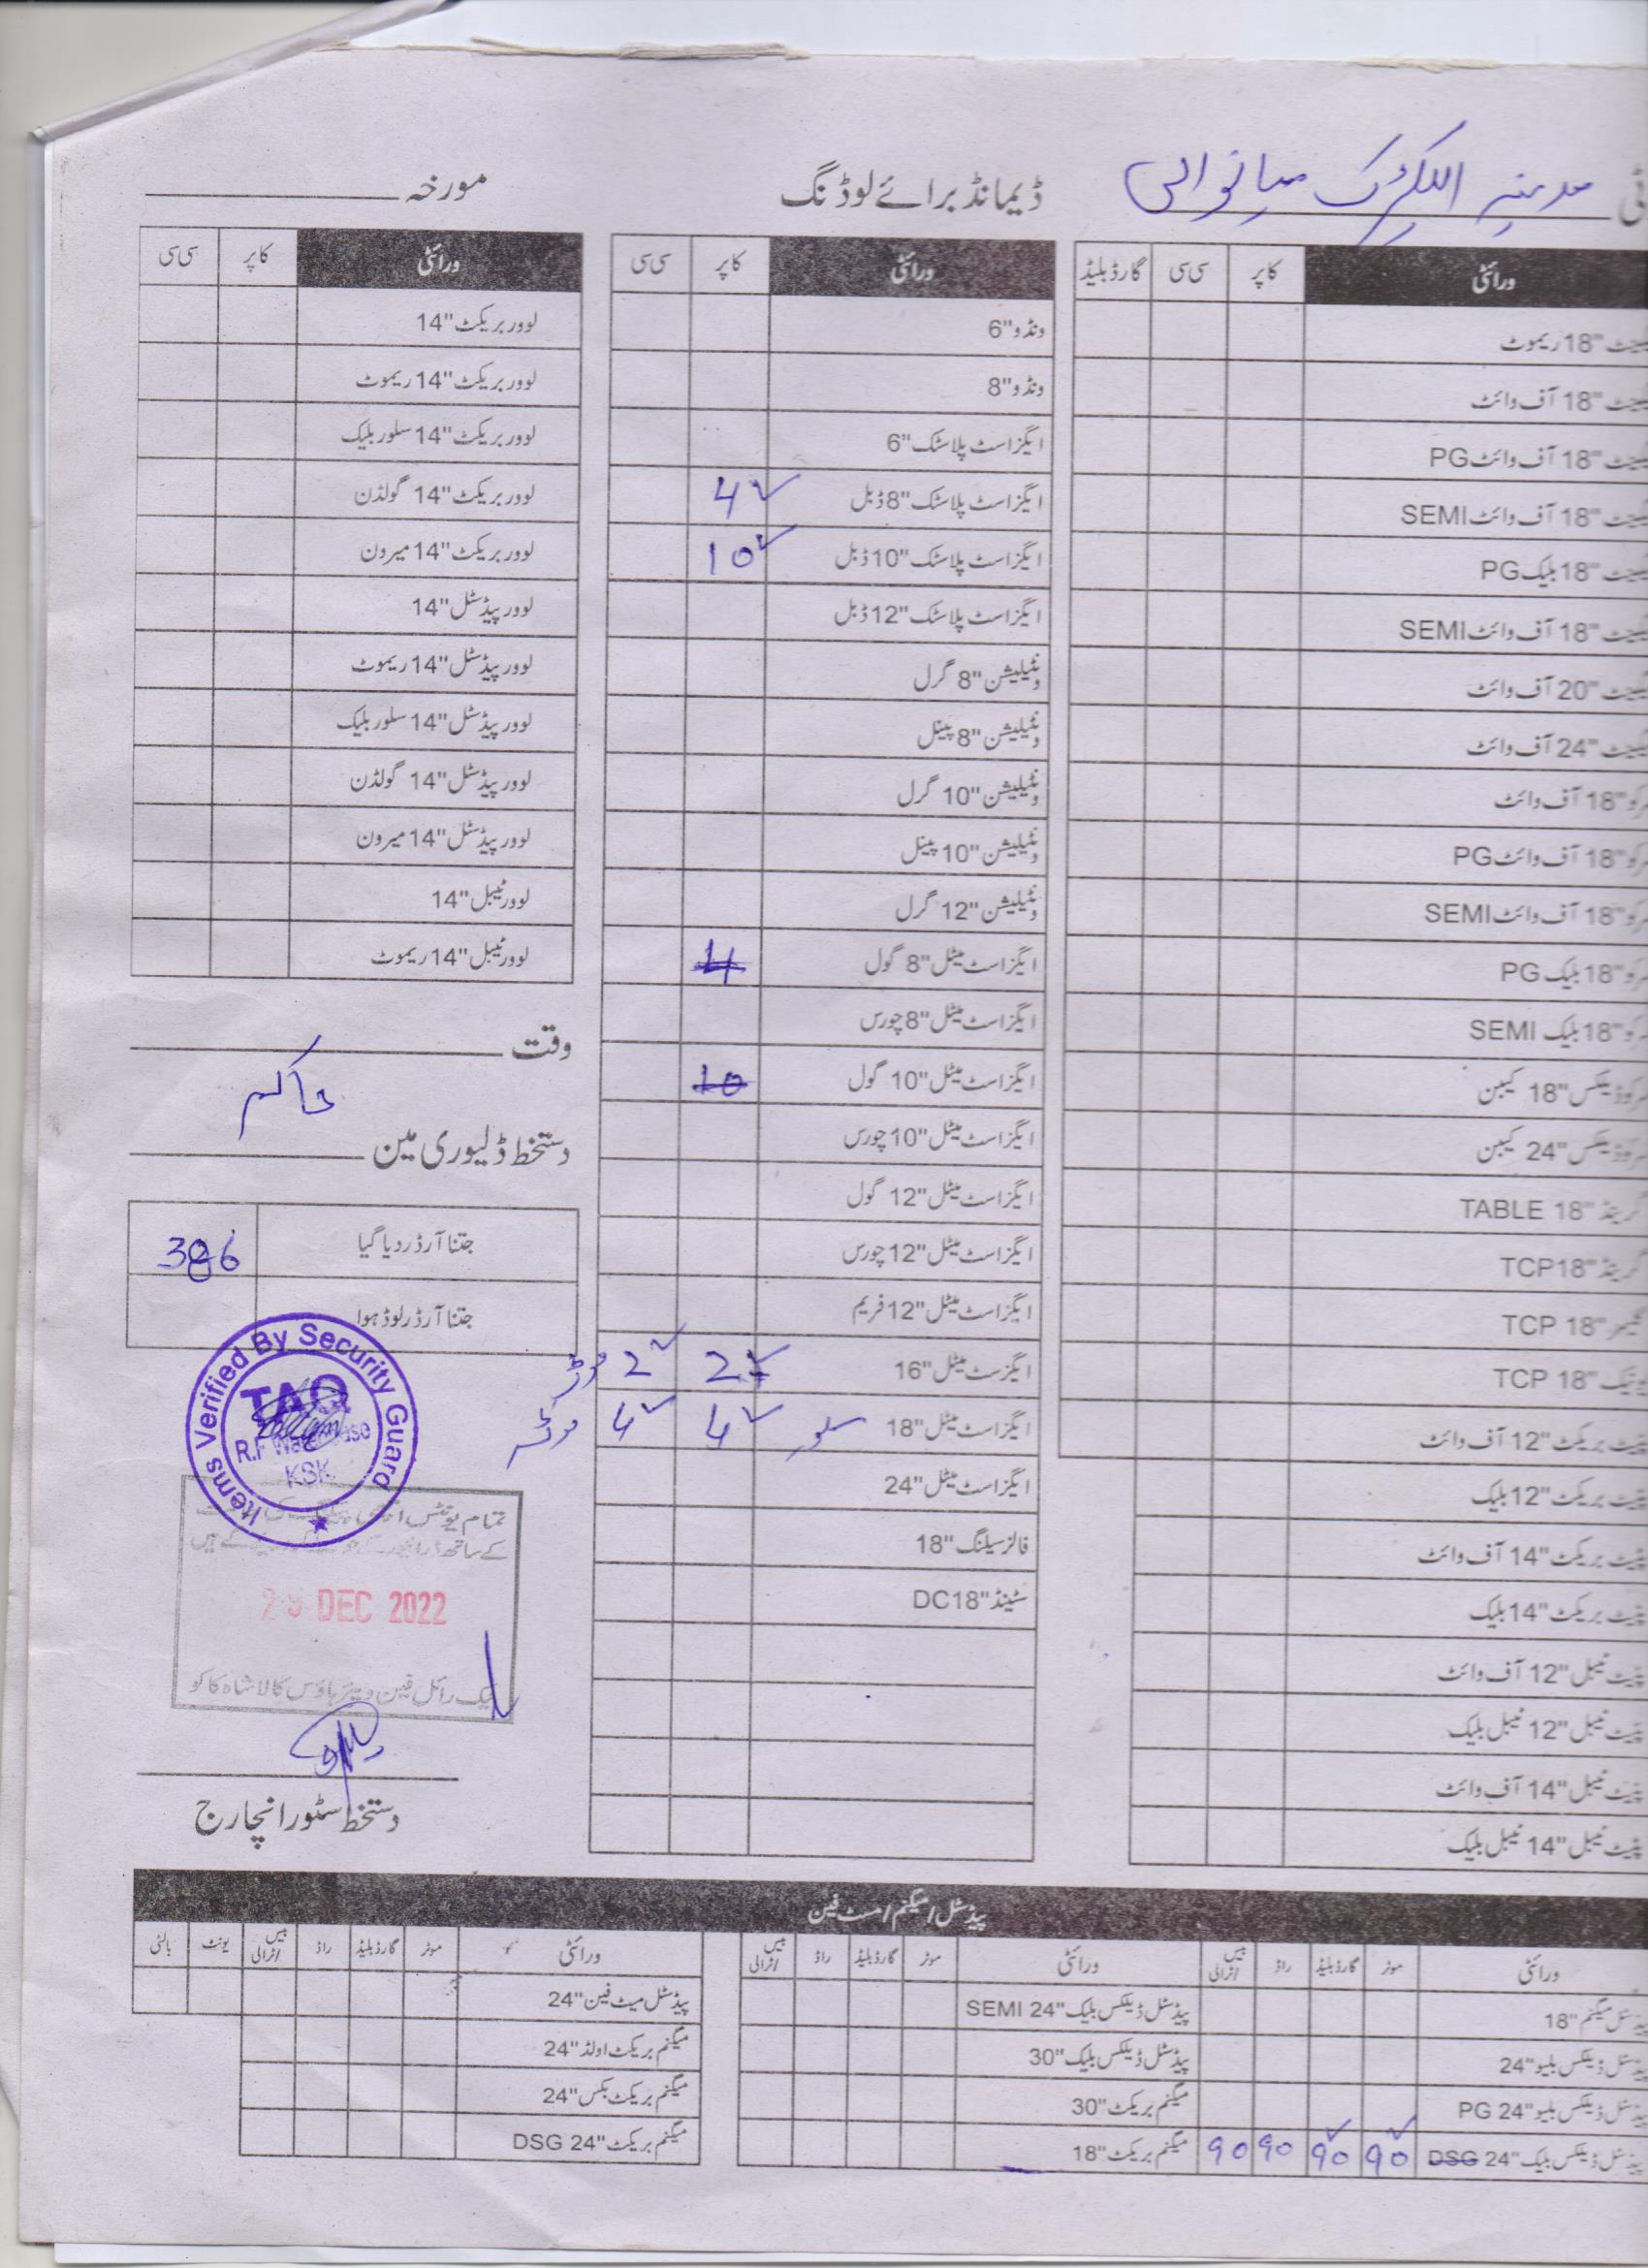 مدینہ الیکٹرک میانوالی
ڈیمانڈ برائے لوڈنگ
مورخہ
ورائٹی کاپر سی سی گارڈ بلیڈ
18" ریموٹ
18" آف وائٹ
18" آف وائٹ PG
18" آف وائٹ SEMI
18" بلیک PG
18" آف وائٹ SEMI
20" آف وائٹ
24" آف وائٹ
18" آف وائٹ
18" آف وائٹ PG
18" آف وائٹ SEMI
18" بلیک PG
18" بلیک SEMI
18" کیبن
24" کیبن
TABLE 18"
TCP 18"
TCP 18"
TCP 18"
بریکٹ 12" آف وائٹ
بریکٹ 12" بلیک
بریکٹ 14" آف وائٹ
بریکٹ 14" بلیک
ٹیبل 12" آف وائٹ
ٹیبل 12" ٹیبل بلیک
ٹیبل 14" آف وائٹ
ٹیبل 14" ٹیبل بلیک
ورائٹی کاپر سی سی
ونڈو 6"
ونڈو 8"
ایگزاسٹ پلاسٹک 6"
ایگزاسٹ پلاسٹک 8" ڈبل 4
ایگزاسٹ پلاسٹک 10" ڈبل 10
ایگزاسٹ پلاسٹک 12" ڈبل
ونٹیلیشن 8" گرل
ونٹیلیشن 8" پینل
ونٹیلیشن 10" گرل
ونٹیلیشن 10" پینل
ونٹیلیشن 12" گرل
ایگزاسٹ میٹل 8" گول 4
ایگزاسٹ میٹل 8" چورس
ایگزاسٹ میٹل 10" گول 10
ایگزاسٹ میٹل 10" چورس
ایگزاسٹ میٹل 12" گول
ایگزاسٹ میٹل 12" چورس
ایگزاسٹ میٹل 12" فریم
ایگزسٹ میٹل 16" 2 2
ایگزاسٹ میٹل 18" سلور 4 4
ایگزاسٹ میٹل 24"
فالز سیلنگ 18"
سٹینڈ DC18"
ورائٹی کاپر سی سی
لوور بریکٹ 14"
لوور بریکٹ 14" ریموٹ
لوور بریکٹ 14" سلور بلیک
لوور بریکٹ 14" گولڈن
لوور بریکٹ 14" میرون
لوور پیڈسٹل 14"
لوور پیڈسٹل 14" ریموٹ
لوور پیڈسٹل 14" سلور بلیک
لوور پیڈسٹل 14" گولڈن
لوور پیڈسٹل 14" میرون
لوور ٹیبل 14"
لوور ٹیبل 14" ریموٹ
وقت
حاکم
دستخط ڈلیوری مین
جتنا آرڈر دیا گیا 386
جتنا آرڈر لوڈ ہوا
Items Verified By Security Guard
TAQ
R.F Warehouse
KSK
تمام یونٹس
کے ساتھ کے ہیں
DEC 2022
رائل فین ویئر ہاؤس کالا شاہ کاکو
دستخط سٹور انچارج
پیڈسٹل / میگنم / مسٹ فین
ورائٹی موٹر گارڈ بلیڈ راڈ بیس / ٹرالی
پیڈسٹل میگنم 18"
پیڈسٹل ڈیلکس بلیو 24"
پیڈسٹل ڈیلکس بلیو 24" PG
پیڈسٹل ڈیلکس بلیک 24" DSG 90 90 90 90
ورائٹی موٹر گارڈ بلیڈ راڈ بیس / ٹرالی
پیڈسٹل ڈیلکس بلیک 24" SEMI
پیڈسٹل ڈیلکس بلیک 30"
میگنم بریکٹ 30"
میگنم بریکٹ 18"
ورائٹی موٹر گارڈ بلیڈ راڈ بیس / ٹرالی یونٹ بالٹی
پیڈسٹل میٹ فین 24"
میگنم بریکٹ اولڈ 24"
میگنم بریکٹ بکس 24"
میگنم بریکٹ 24" DSG